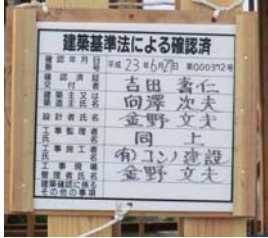 建築基準法による確認済
確認年月日番号 平成23年6月27日 第000392号
確認済証交付者 吉田 壽仁
建築主又は築造主氏名 向澤 次夫
設計者氏名 金野 文夫
工事監理者氏名 同上
工事施工者氏名 (有)コンノ建設
工事現場管理者氏名 金野 文夫
建築確認に係るその他の事項